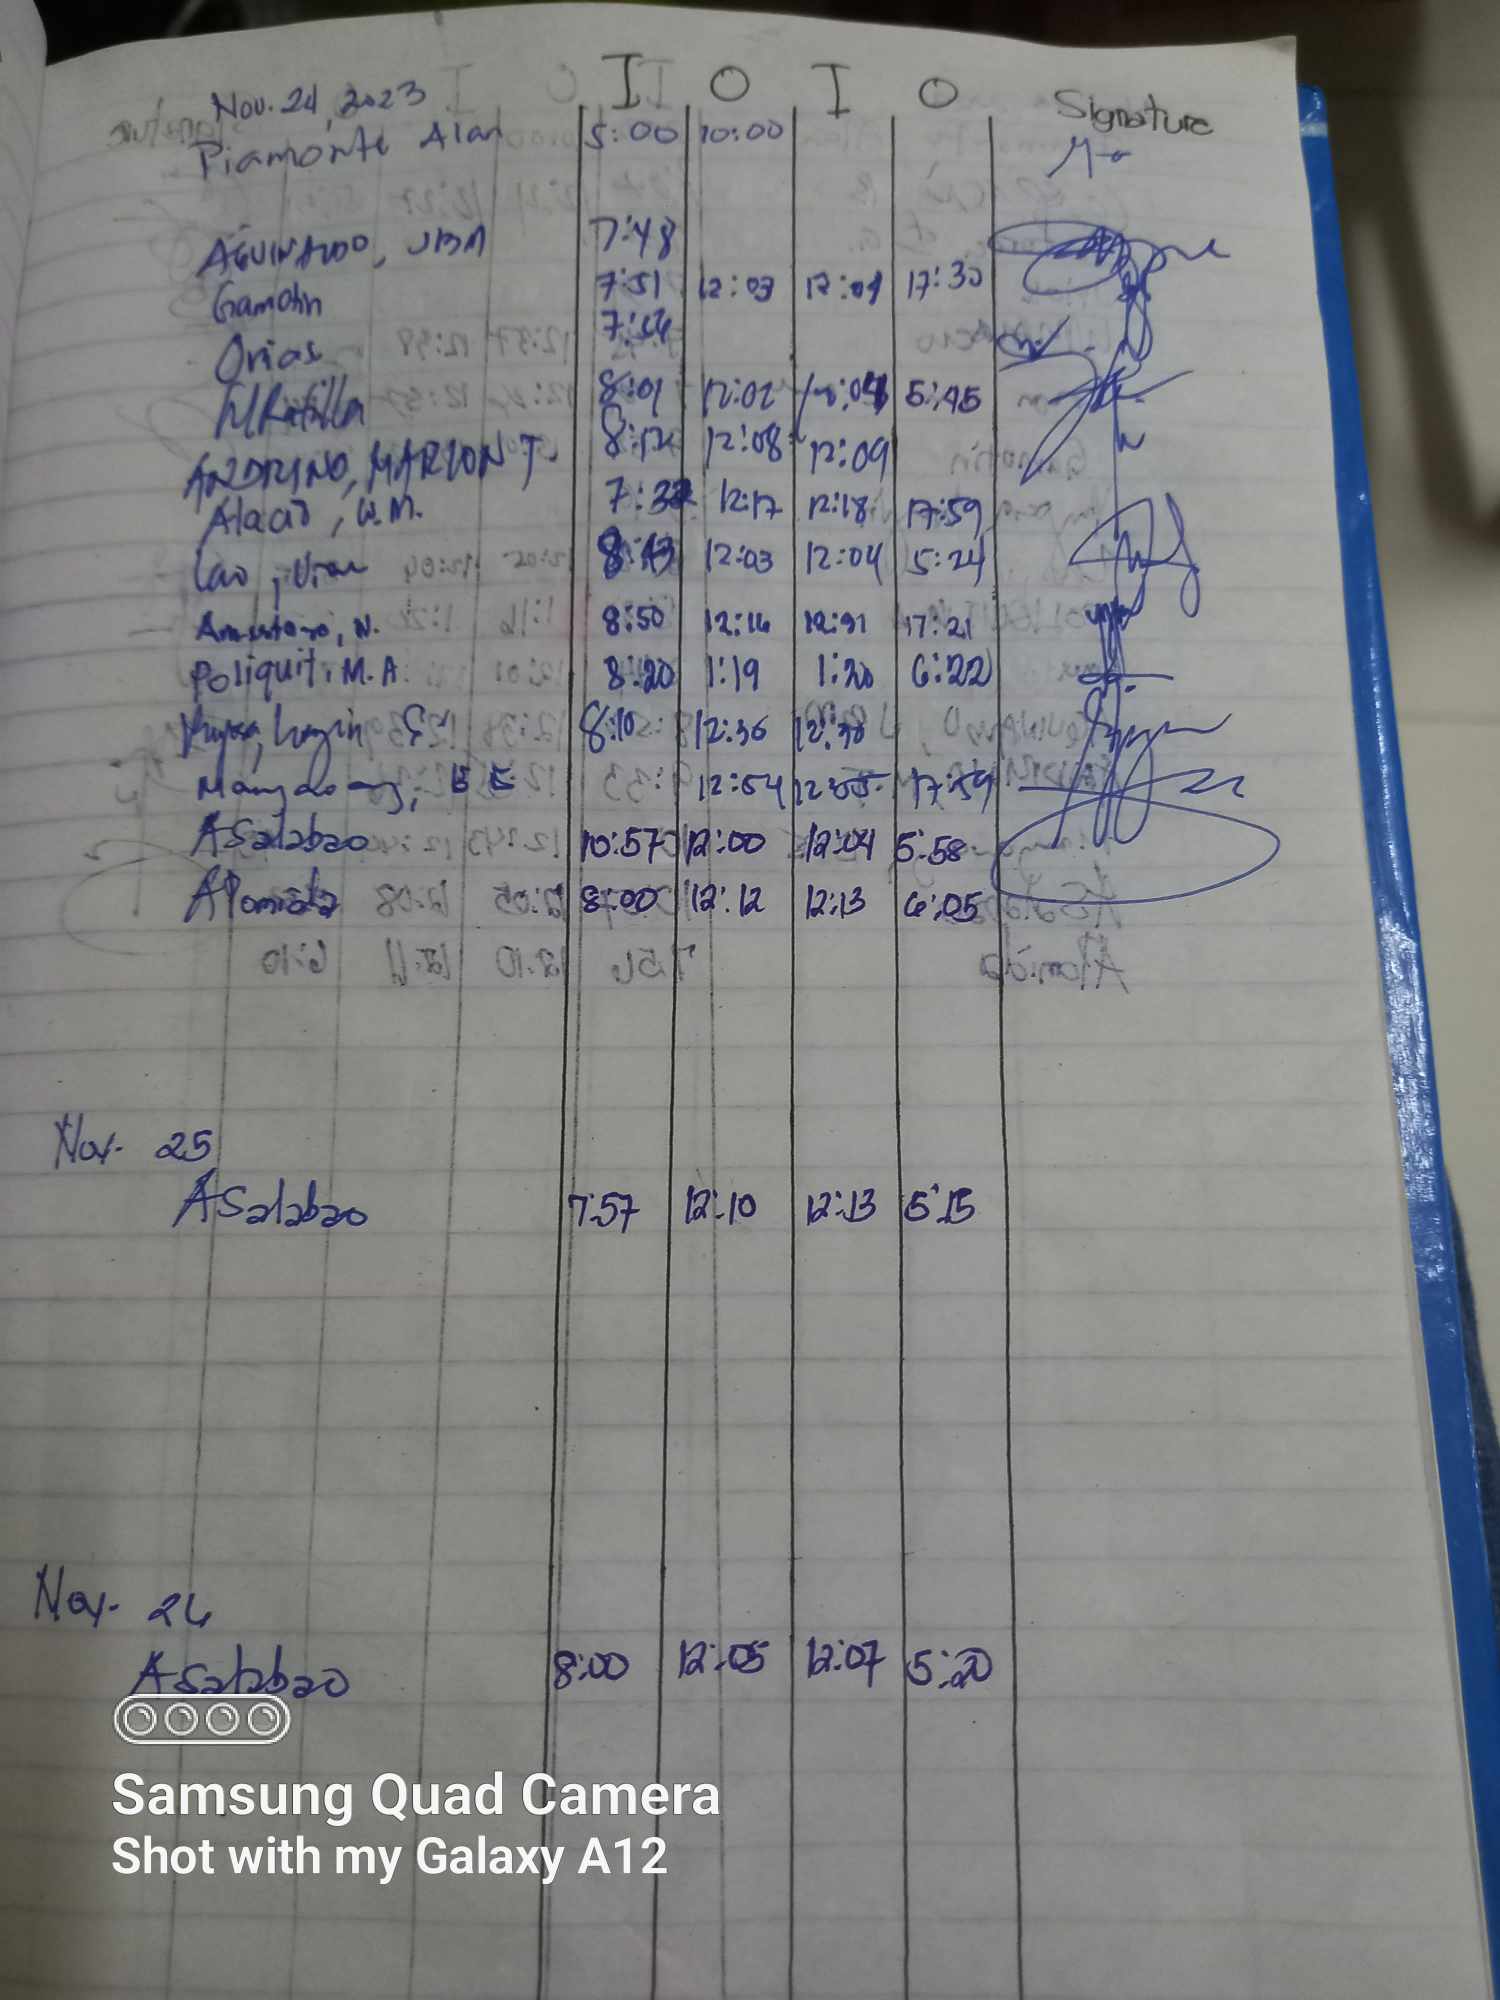 I O I O Signature
Nov. 24, 2023
Piamonte Alan 5:00 10:00
AGUINALDO, JBM 7:48
Gamotin 7:51 12:03 12:04 17:30
Orias
8:01 12:02 5:45
ANDRINO, MARION T. 8:12 12:08 12:09
Alaad, W.M. 12:17 12:18 17:59
Lao, 8:43 12:03 12:04 5:24
N. 8:50 12:16 17:21
Poliquit, M.A 8:20 1:19 1:20 6:22
8:10 12:36 12:38
12:54 12:55 17:59
ASalabao 10:57 12:00 12:04 5:58
Alomida 8:00 12:12 12:13 6:05
Nov. 25
ASalabao 7:57 12:10 12:13 5:15
Nov. 26
ASalabao 8:00 12:05 12:07 5:20
Samsung Quad Camera
Shot with my Galaxy A12